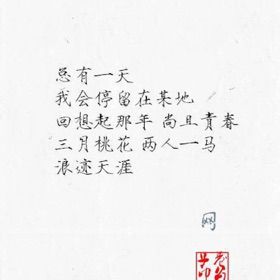 总有一天
我会停留在某地
回想起那年 尚且青春
三月桃花 两人一马
浪迹天涯
网